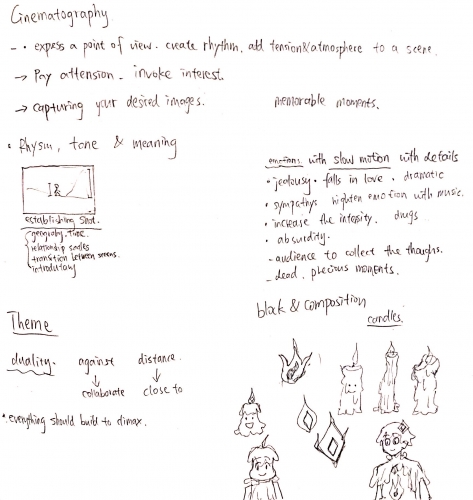 Cinematography
- • express a point of view. create rhythm, add tension & atmosphere to a scene.
→ Pay attension - invoke interest.
→ capturing your desired images. memorable moments.
• Rhysm, tone & meaning
establishing shot.
geography. time.
relationship scales
transition between scenes.
introdutory
emotions with slow motion with details
• jealousy • falls in love • dramatic
• sympathys highten emotion with music.
• increase the intensity. drugs
• absurdity.
- audience to collect the thoughs.
- dead, plecious moments.
Theme
duality. against distance.
↓ ↓
collaborate close to
• everything should build to climax.
block & composition
candles.